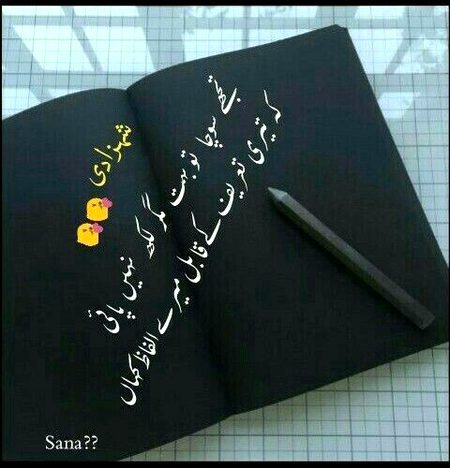 تجھے سوچا تو بہت مگر لکھ نہیں پائی
کہ تیری تعریف کے قابل میرے الفاظ کہاں
شہزادی
Sana??